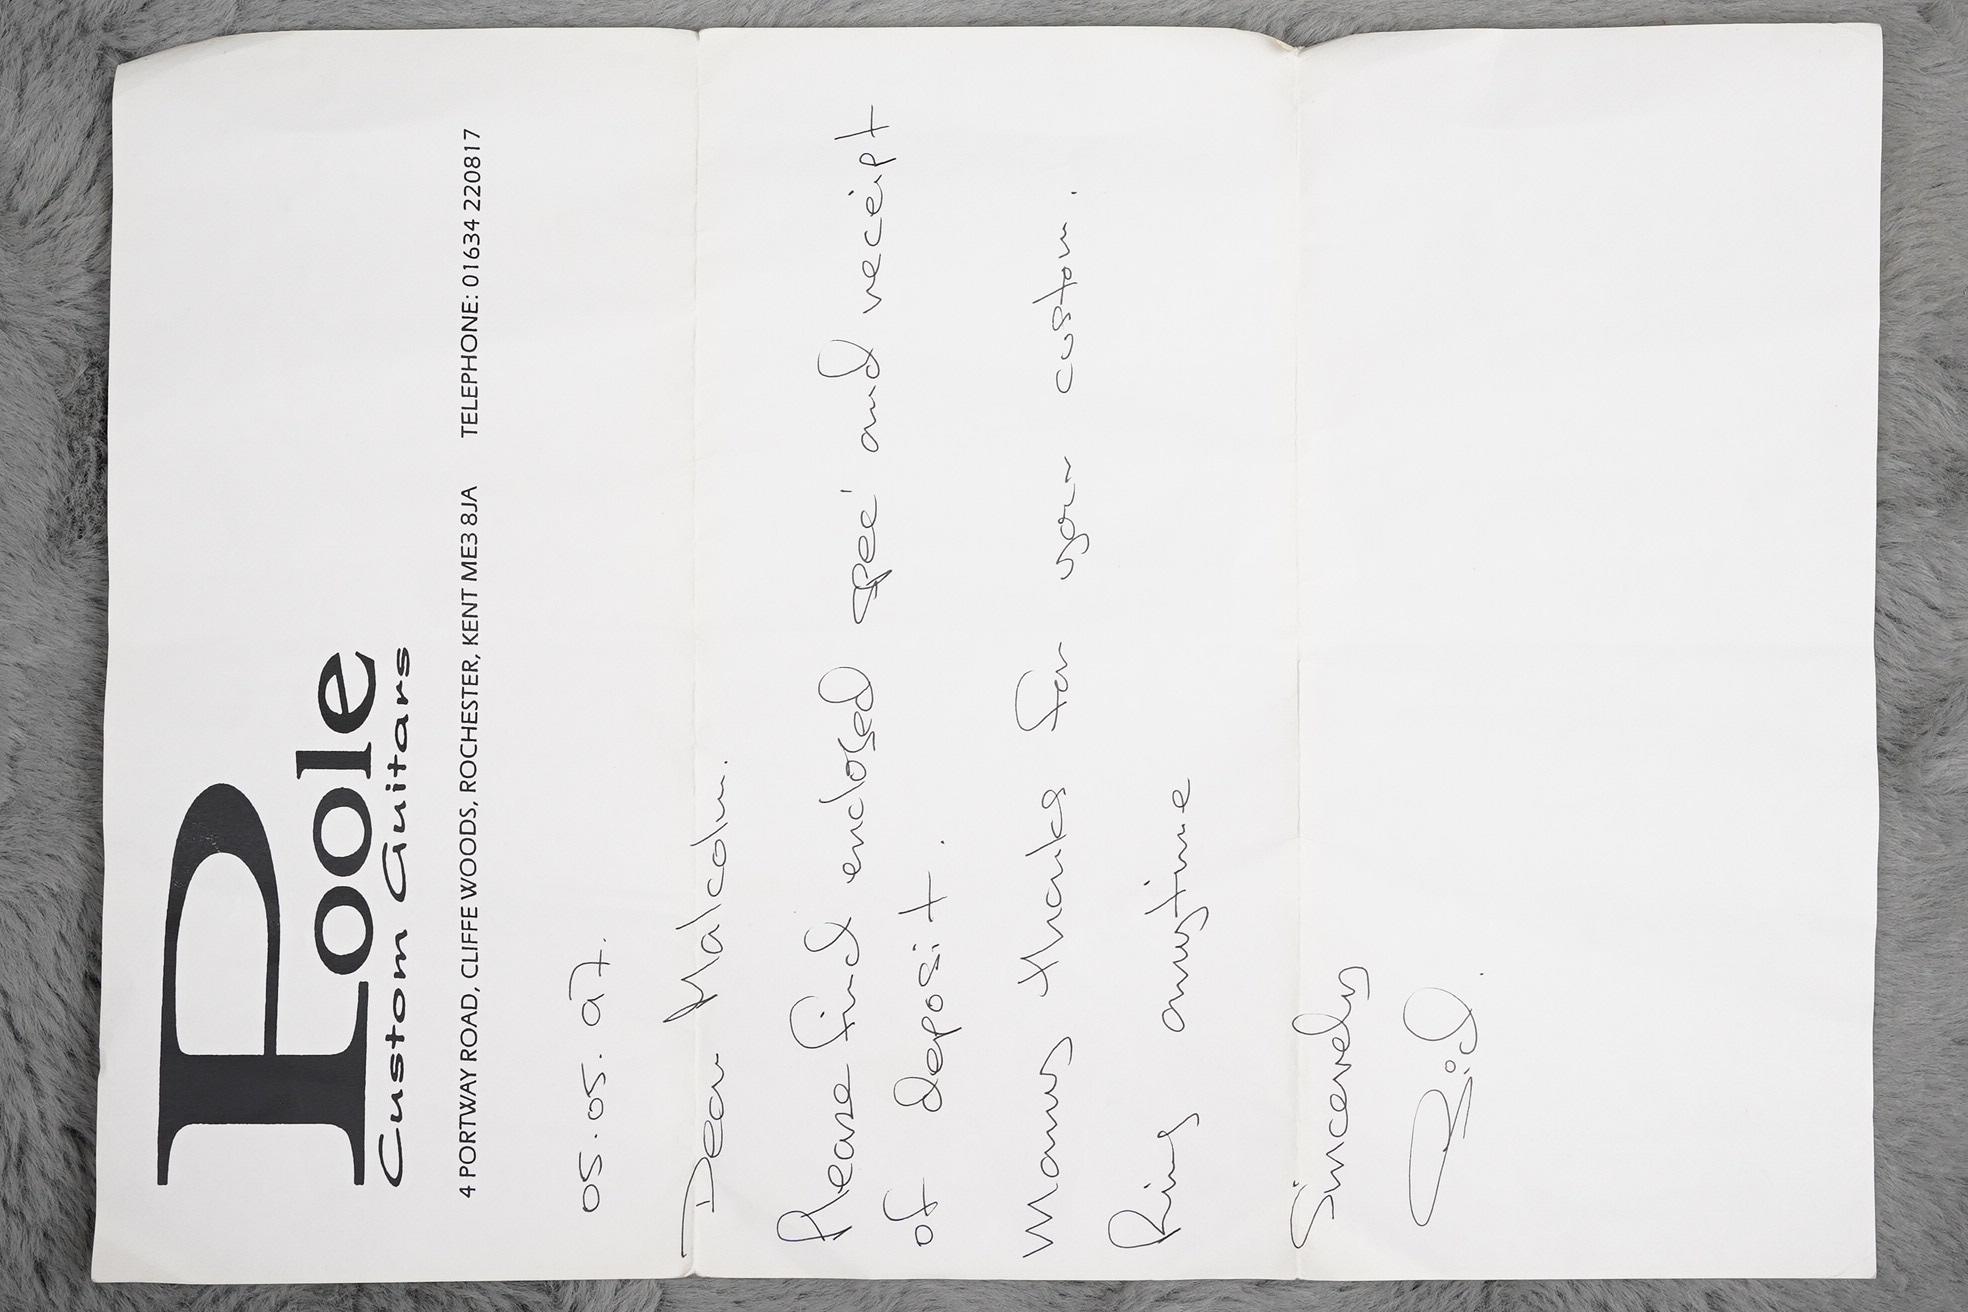 Poole
Custom Guitars
4 PORTWAY ROAD, CLIFFE WOODS, ROCHESTER, KENT ME3 8JA TELEPHONE: 01634 220817
05.05.97.
Dear Malcolm.
Please find enclosed spec' and receipt
of deposit.
Many thanks for your custom.
Ring anytime
Sincerely
Sid.